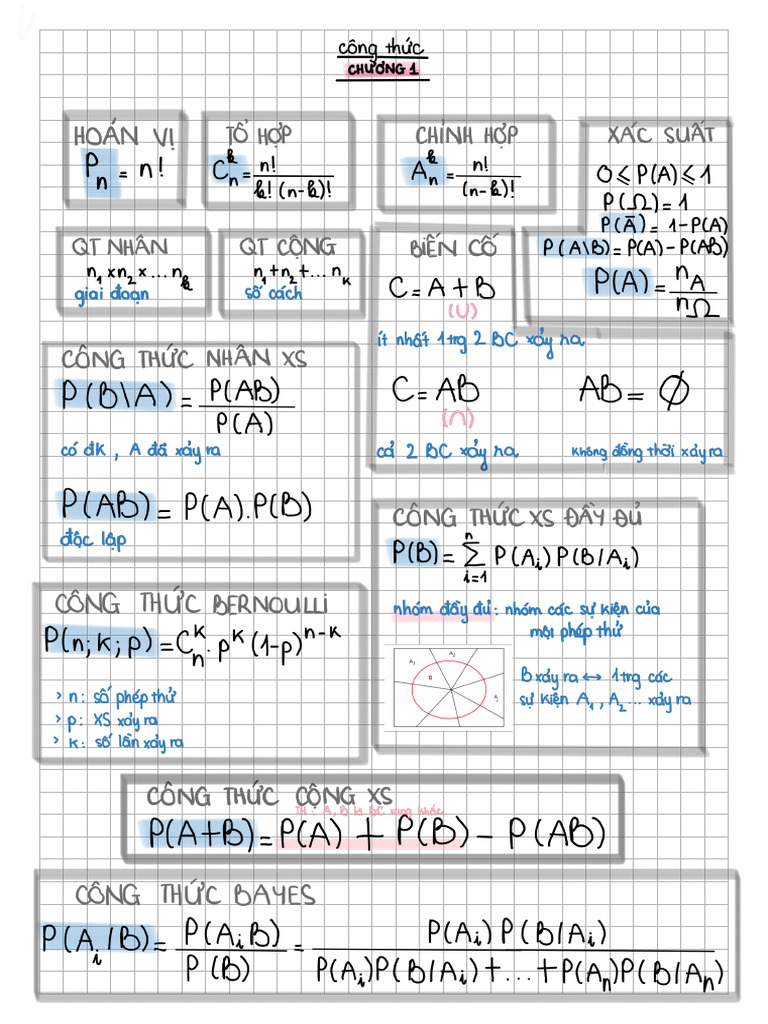 công thức
CHƯƠNG 1
HOÁN VỊ
Pₙ = n!
TỔ HỢP
Cₙᵏ = n! / k!(n-k)!
CHỈNH HỢP
Aₙᵏ = n! / (n-k)!
XÁC SUẤT
0 ≤ P(A) ≤ 1
P(Ω) = 1
P(Ā) = 1 - P(A)
P(A\B) = P(A) - P(AB)
P(A) = n_A / n_Ω
QT NHÂN
n₁ x n₂ x ... nₖ
giai đoạn
QT CỘNG
n₁ + n₂ + ... nₖ
số cách
BIẾN CỐ
C = A + B
(U)
ít nhất 1 trg 2 BC xảy ra
C = AB
(∩)
cả 2 BC xảy ra
AB = ∅
không đồng thời xảy ra
CÔNG THỨC NHÂN XS
P(B\A) = P(AB) / P(A)
có đk, A đã xảy ra
P(AB) = P(A).P(B)
độc lập
CÔNG THỨC XS ĐẦY ĐỦ
P(B) = Σ_{i=1}^{n} P(Aᵢ) P(B/Aᵢ)
nhóm đầy đủ: nhóm các sự kiện của
một phép thử
A₁
A₂
B
B xảy ra ↔ 1 trg các
sự kiện A₁, A₂ ... xảy ra
CÔNG THỨC BERNOULLI
P(n; k; p) = Cₙᵏ . pᵏ (1-p)ⁿ⁻ᵏ
> n: số phép thử
> p: XS xảy ra
> k: số lần xảy ra
CÔNG THỨC CỘNG XS
TH: A, B là BC xung khắc
P(A+B) = P(A) + P(B) - P(AB)
CÔNG THỨC BAYES
P(Aᵢ/B) = P(AᵢB) / P(B) = P(Aᵢ) P(B/Aᵢ) / P(Aᵢ)P(B/Aᵢ) + ... + P(Aₙ)P(B/Aₙ)